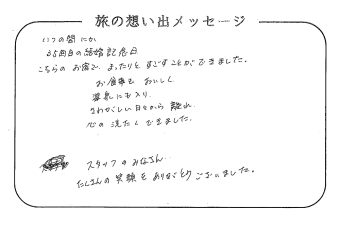 旅の想い出メッセージ
いつの間にか
35回目の結婚記念日
こちらのお宿で、まったりとすごすことができました。
お食事もおいしく
温泉にも入り、
さわがしい日々から離れ
心の洗たくできました。
スタッフのみなさん…
たくさんの笑顔をありがとうございました。